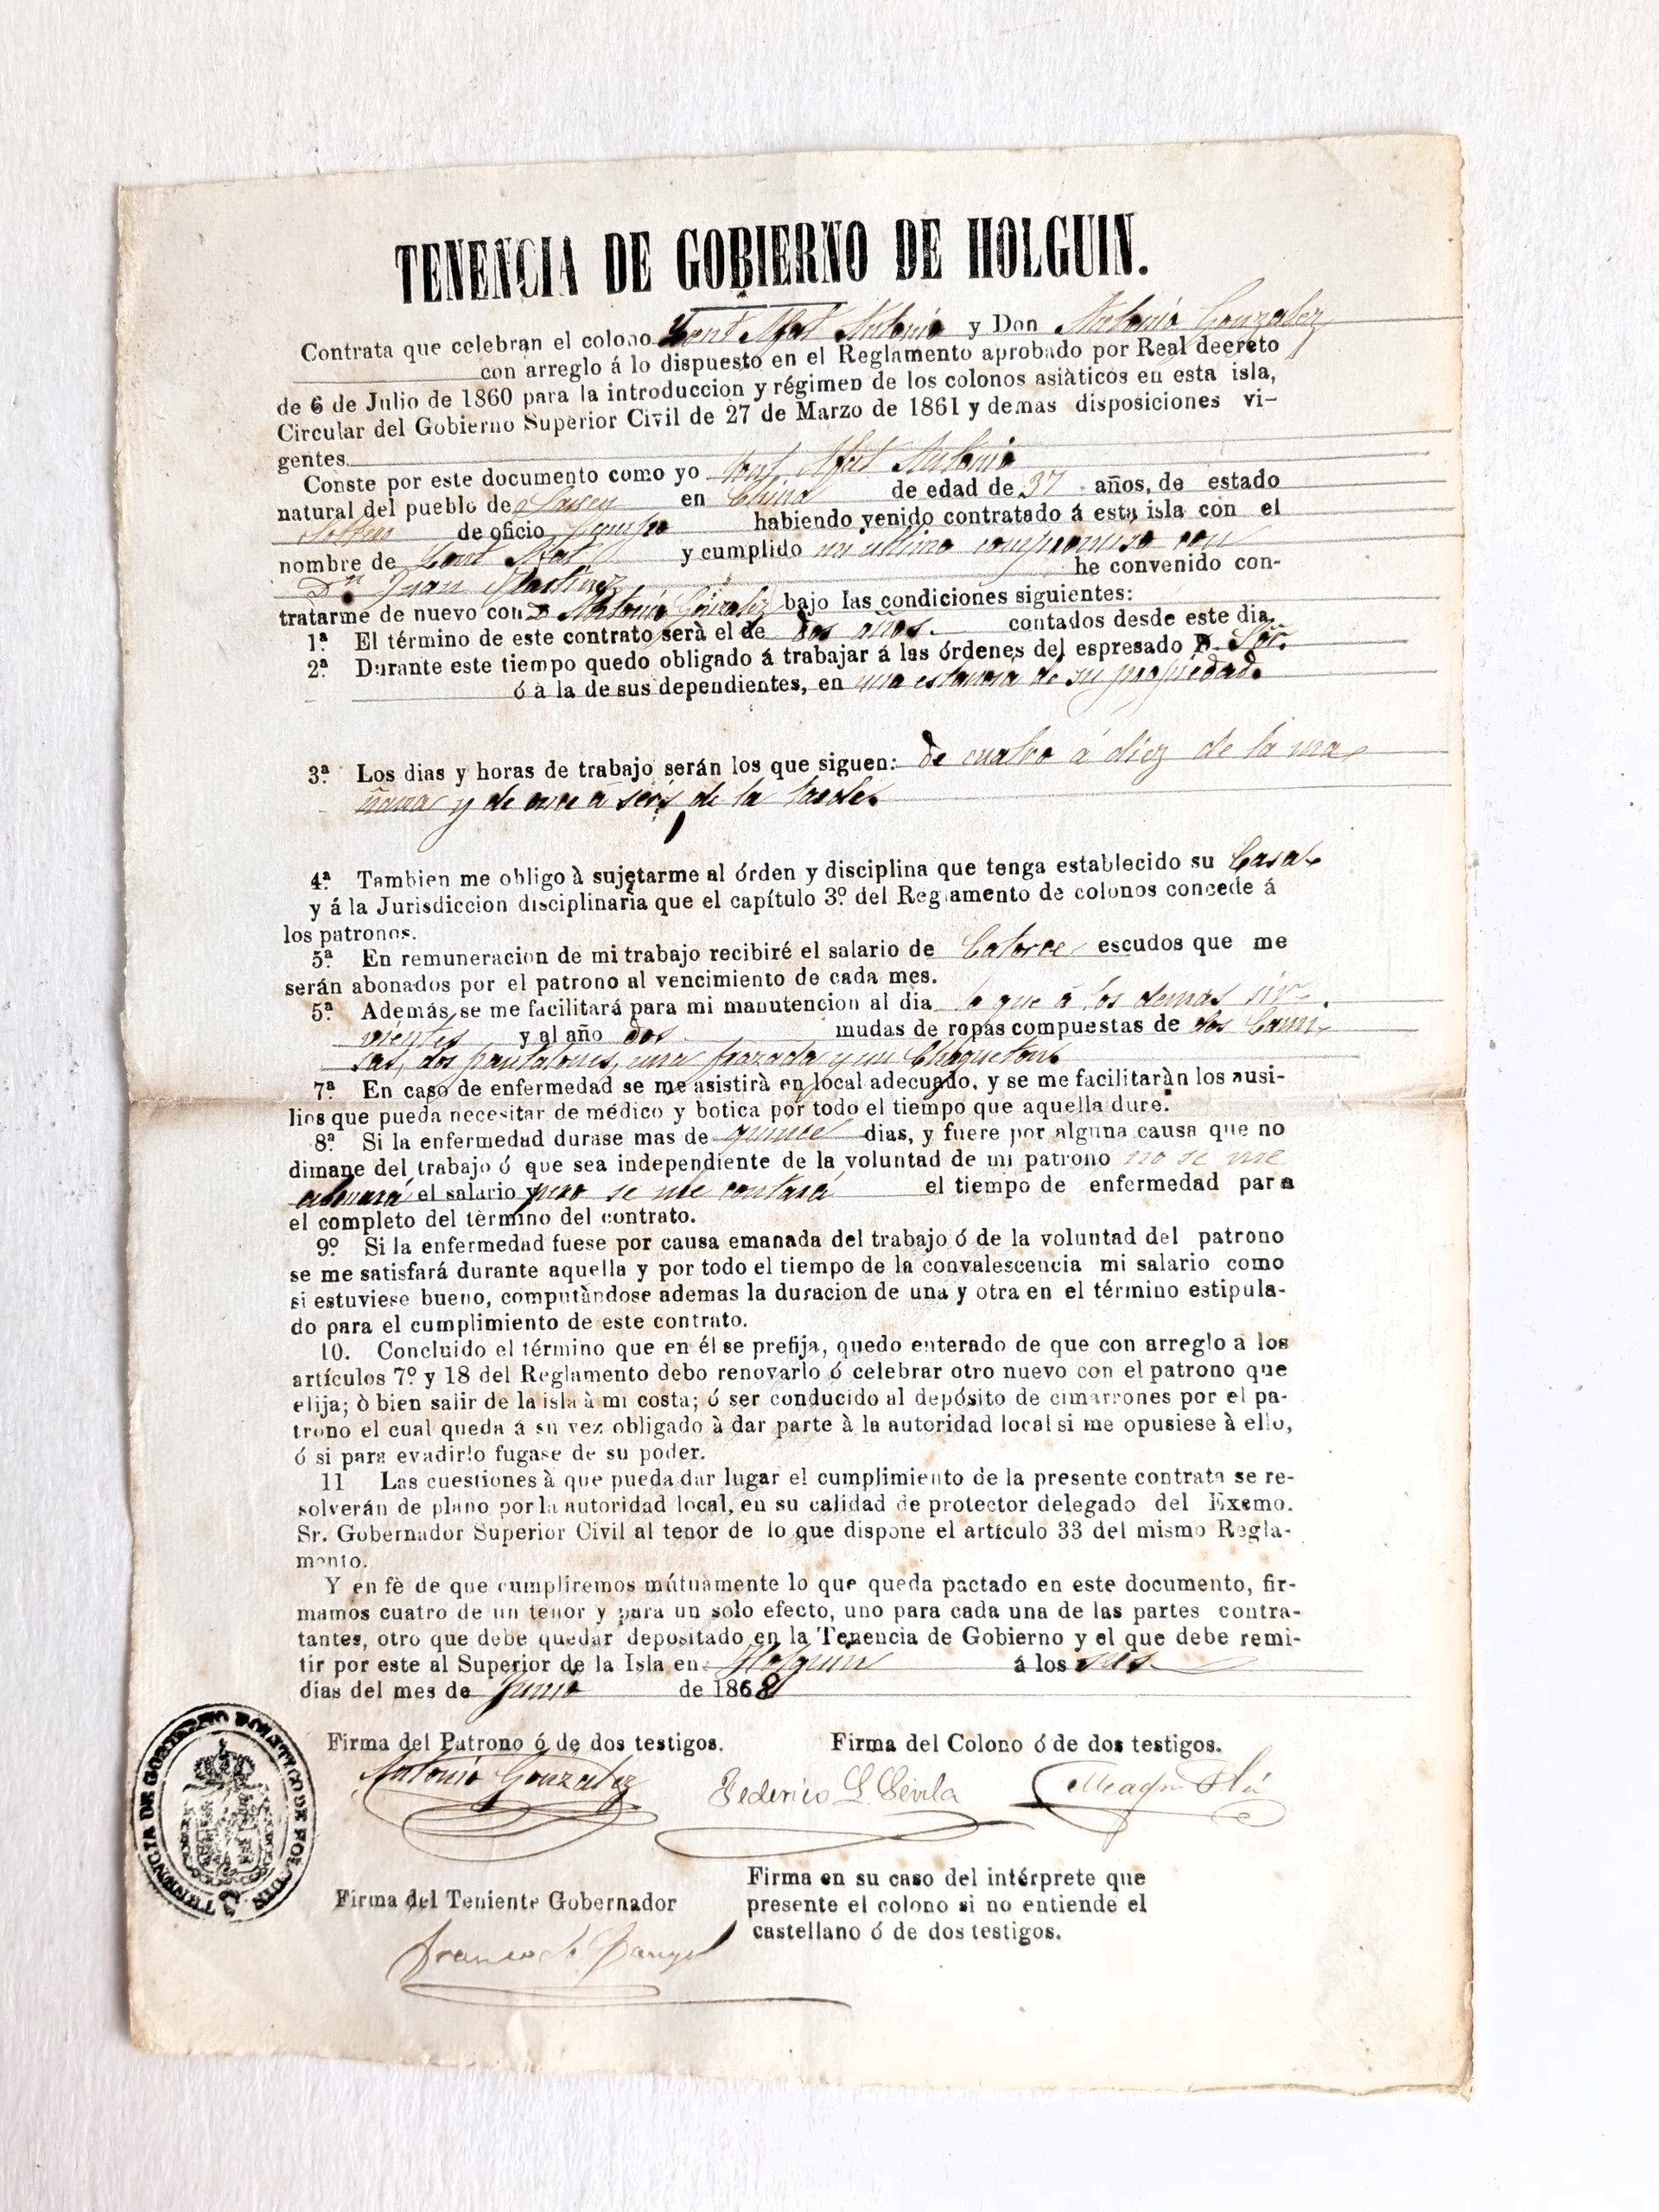 TENENCIA DE GOBIERNO DE HOLGUIN.
Contrata que celebran el colono Antonio y Don Antonio Gonzalez
con arreglo á lo dispuesto en el Reglamento aprobado por Real decreto
de 6 de Julio de 1860 para la introduccion y régimen de los colonos asiàticos en esta isla,
Circular del Gobierno Superior Civil de 27 de Marzo de 1861 y demas disposiciones vi-
gentes.
Conste por este documento como yo Antonio
natural del pueblo de en China de edad de 37 años, de estado
Soltero de oficio Campo habiendo venido contratado á esta isla con el
nombre de y cumplido mi ultimo compromiso con
Dn Juan Martinez he convenido con-
tratarme de nuevo con D Antonio Gonzalez bajo las condiciones siguientes:
1ª El término de este contrato serà el de dos años. contados desde este dia.
2ª Durante este tiempo quedo obligado á trabajar á las órdenes del espresado D. Sor.
ó à la de sus dependientes, en una estancia de su propiedad.
3ª Los dias y horas de trabajo serán los que siguen: de cuatro á diez de la ma-
ñana y de once a seis de la tarde.
4ª Tambien me obligo à sujetarme al órden y disciplina que tenga establecido su Casa
y á la Jurisdiccion disciplinaria que el capítulo 3º del Reglamento de colonos concede á
los patronos.
5ª En remuneracion de mi trabajo recibiré el salario de Catorce escudos que me
serán abonados por el patrono al vencimiento de cada mes.
5ª Además se me facilitará para mi manutencion al dia lo que á los demas sir-
vientes y al año dos mudas de ropas compuestas de dos Cami-
sas, dos pantalones, una frazada y un Chaqueton.
7ª En caso de enfermedad se me asistirà en local adecuado, y se me facilitaràn los ausi-
lios que pueda necesitar de médico y botica por todo el tiempo que aquella dure.
8ª Si la enfermedad durase mas de quince dias, y fuere por alguna causa que no
dimane del trabajo ó que sea independiente de la voluntad de mi patrono no se me
abonará el salario y pero se me contará el tiempo de enfermedad para
el completo del tèrmino del contrato.
9º Si la enfermedad fuese por causa emanada del trabajo ó de la voluntad del patrono
se me satisfará durante aquella y por todo el tiempo de la convalescencia mi salario como
si estuviese bueno, computàndose ademas la duracion de una y otra en el término estipula-
do para el cumplimiento de este contrato.
10. Concluido el término que en él se prefija, quedo enterado de que con arreglo à los
artículos 7º y 18 del Reglamento debo renovarlo ó celebrar otro nuevo con el patrono que
elija; ò bien salir de la isla à mi costa; ó ser conducido al depósito de cimarrones por el pa-
trono el cual queda á su vez obligado à dar parte à la autoridad local si me opusiese à ello,
ó si para evadirlo fugase de su poder.
11 Las cuestiones à que pueda dar lugar el cumplimiento de la presente contrata se re-
solverán de plano por la autoridad local, en su calidad de protector delegado del Exsmo.
Sr. Gobernador Superior Civil al tenor de lo que dispone el artículo 33 del mismo Regla-
mento.
Y en fè de que cumpliremos mútuamente lo que queda pactado en este documento, fir-
mamos cuatro de un tenor y para un solo efecto, uno para cada una de las partes contra-
tantes, otro que debe quedar depositado en la Tenencia de Gobierno y el que debe remi-
tir por este al Superior de la Isla en Holguin á los seis
dias del mes de Junio de 1868
Firma del Patrono ó de dos testigos. Firma del Colono ó de dos testigos.
Antonio Gonzalez Federico
TENENCIA DE GOBIERNO POLITICO DE HOLGUIN
Firma del Teniente Gobernador
Firma en su caso del intérprete que
presente el colono si no entiende el
castellano ó de dos testigos.